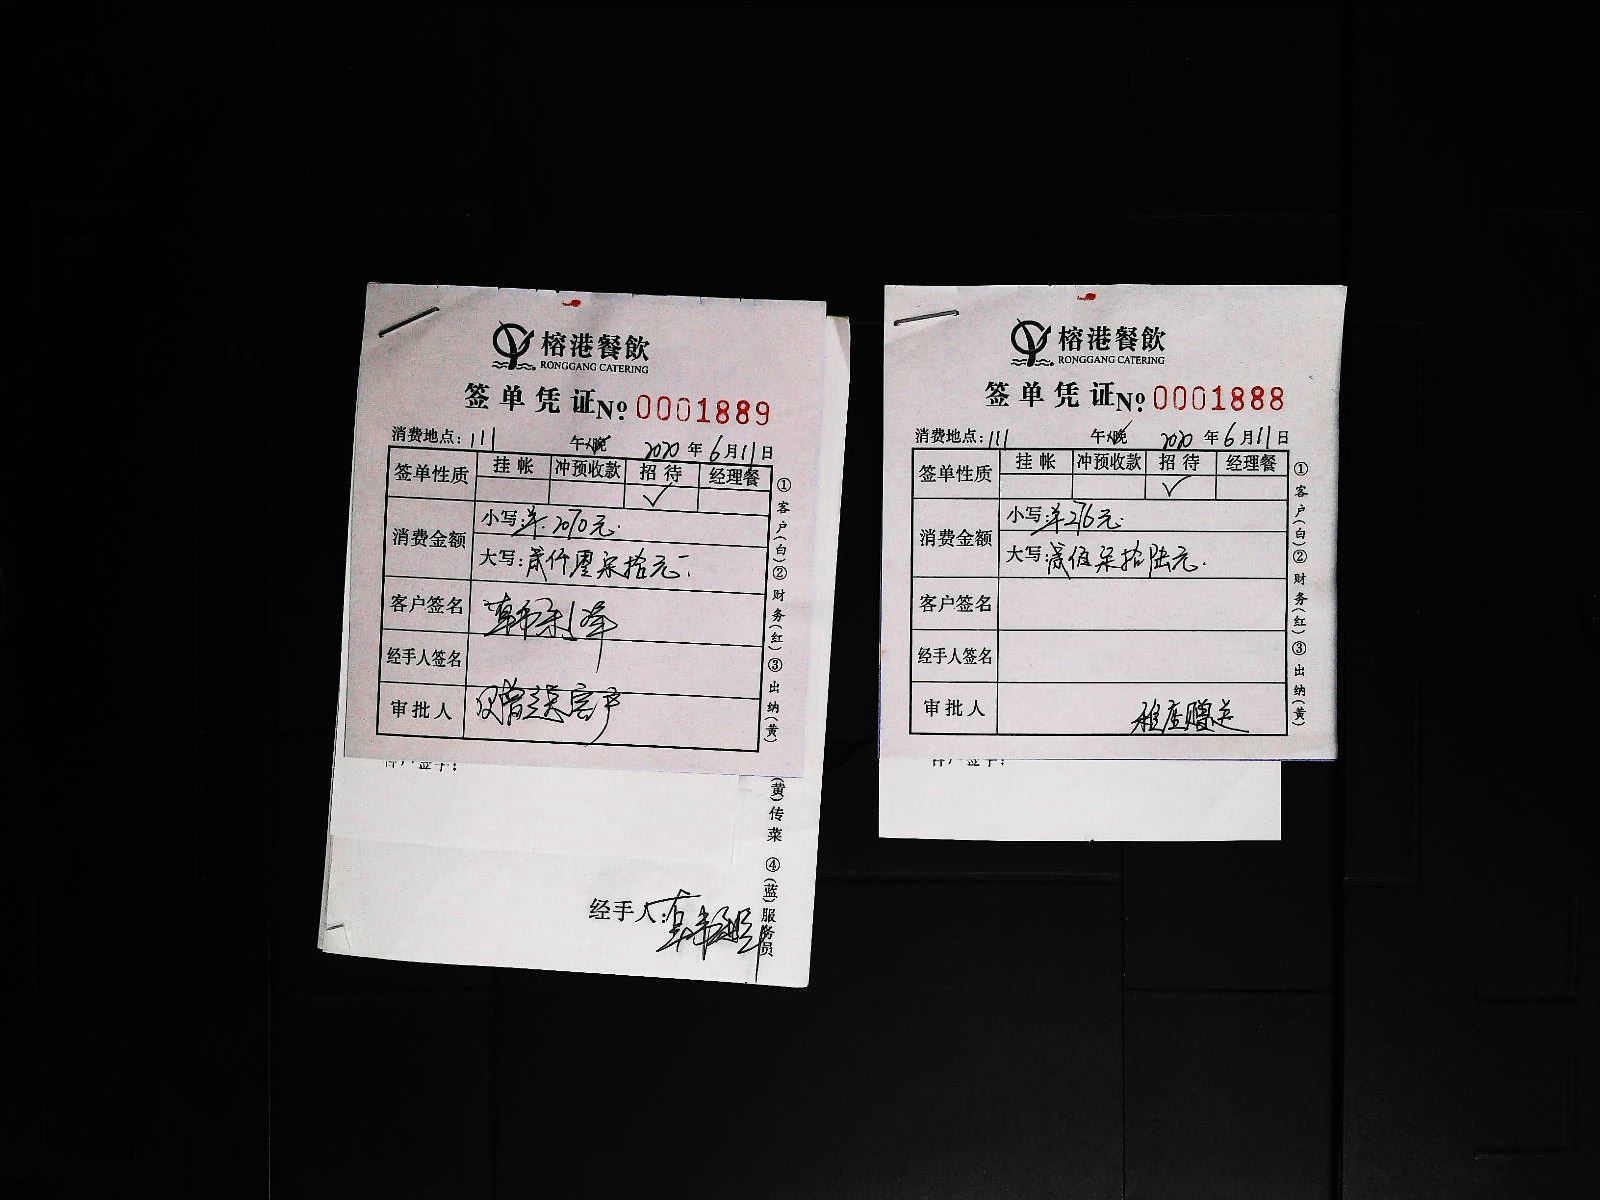 榕港餐飲
RONGGANG CATERING
签单凭证 № 0001889
消费地点: 111 午 晚 2020年6月11日
签单性质 挂帐 冲预收款 招待 经理餐
✓
消费金额
小写: 羊: 2070元.
大写: 贰仟零柒拾元
客户签名
经手人签名
审批人 赠送客户
①客户(白)②财务(红)③出纳(黄)
客户签字:
(黄)传菜 ④(蓝)服务员
经手人:
榕港餐飲
RONGGANG CATERING
签单凭证 № 0001888
消费地点: 111 午 晚 2020年6月11日
签单性质 挂帐 冲预收款 招待 经理餐
✓
消费金额
小写: 羊276元.
大写: 贰佰柒拾陆元.
客户签名
经手人签名
审批人 雅座赠送
①客户(白)②财务(红)③出纳(黄)
客户签字: